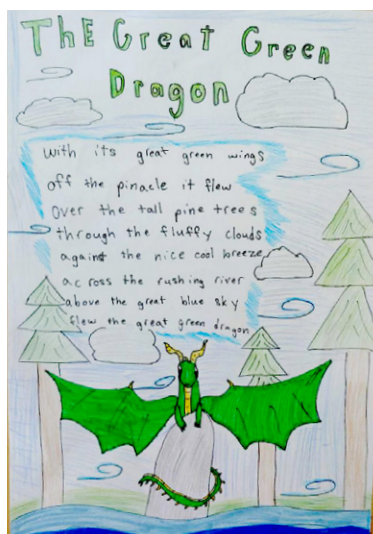 The Great Green
Dragon
with its great green wings
off the pinacle it flew
over the tall pine trees
through the fluffy clouds
against the nice cool breeze
across the rushing river
above the great blue sky
flew the great green dragon